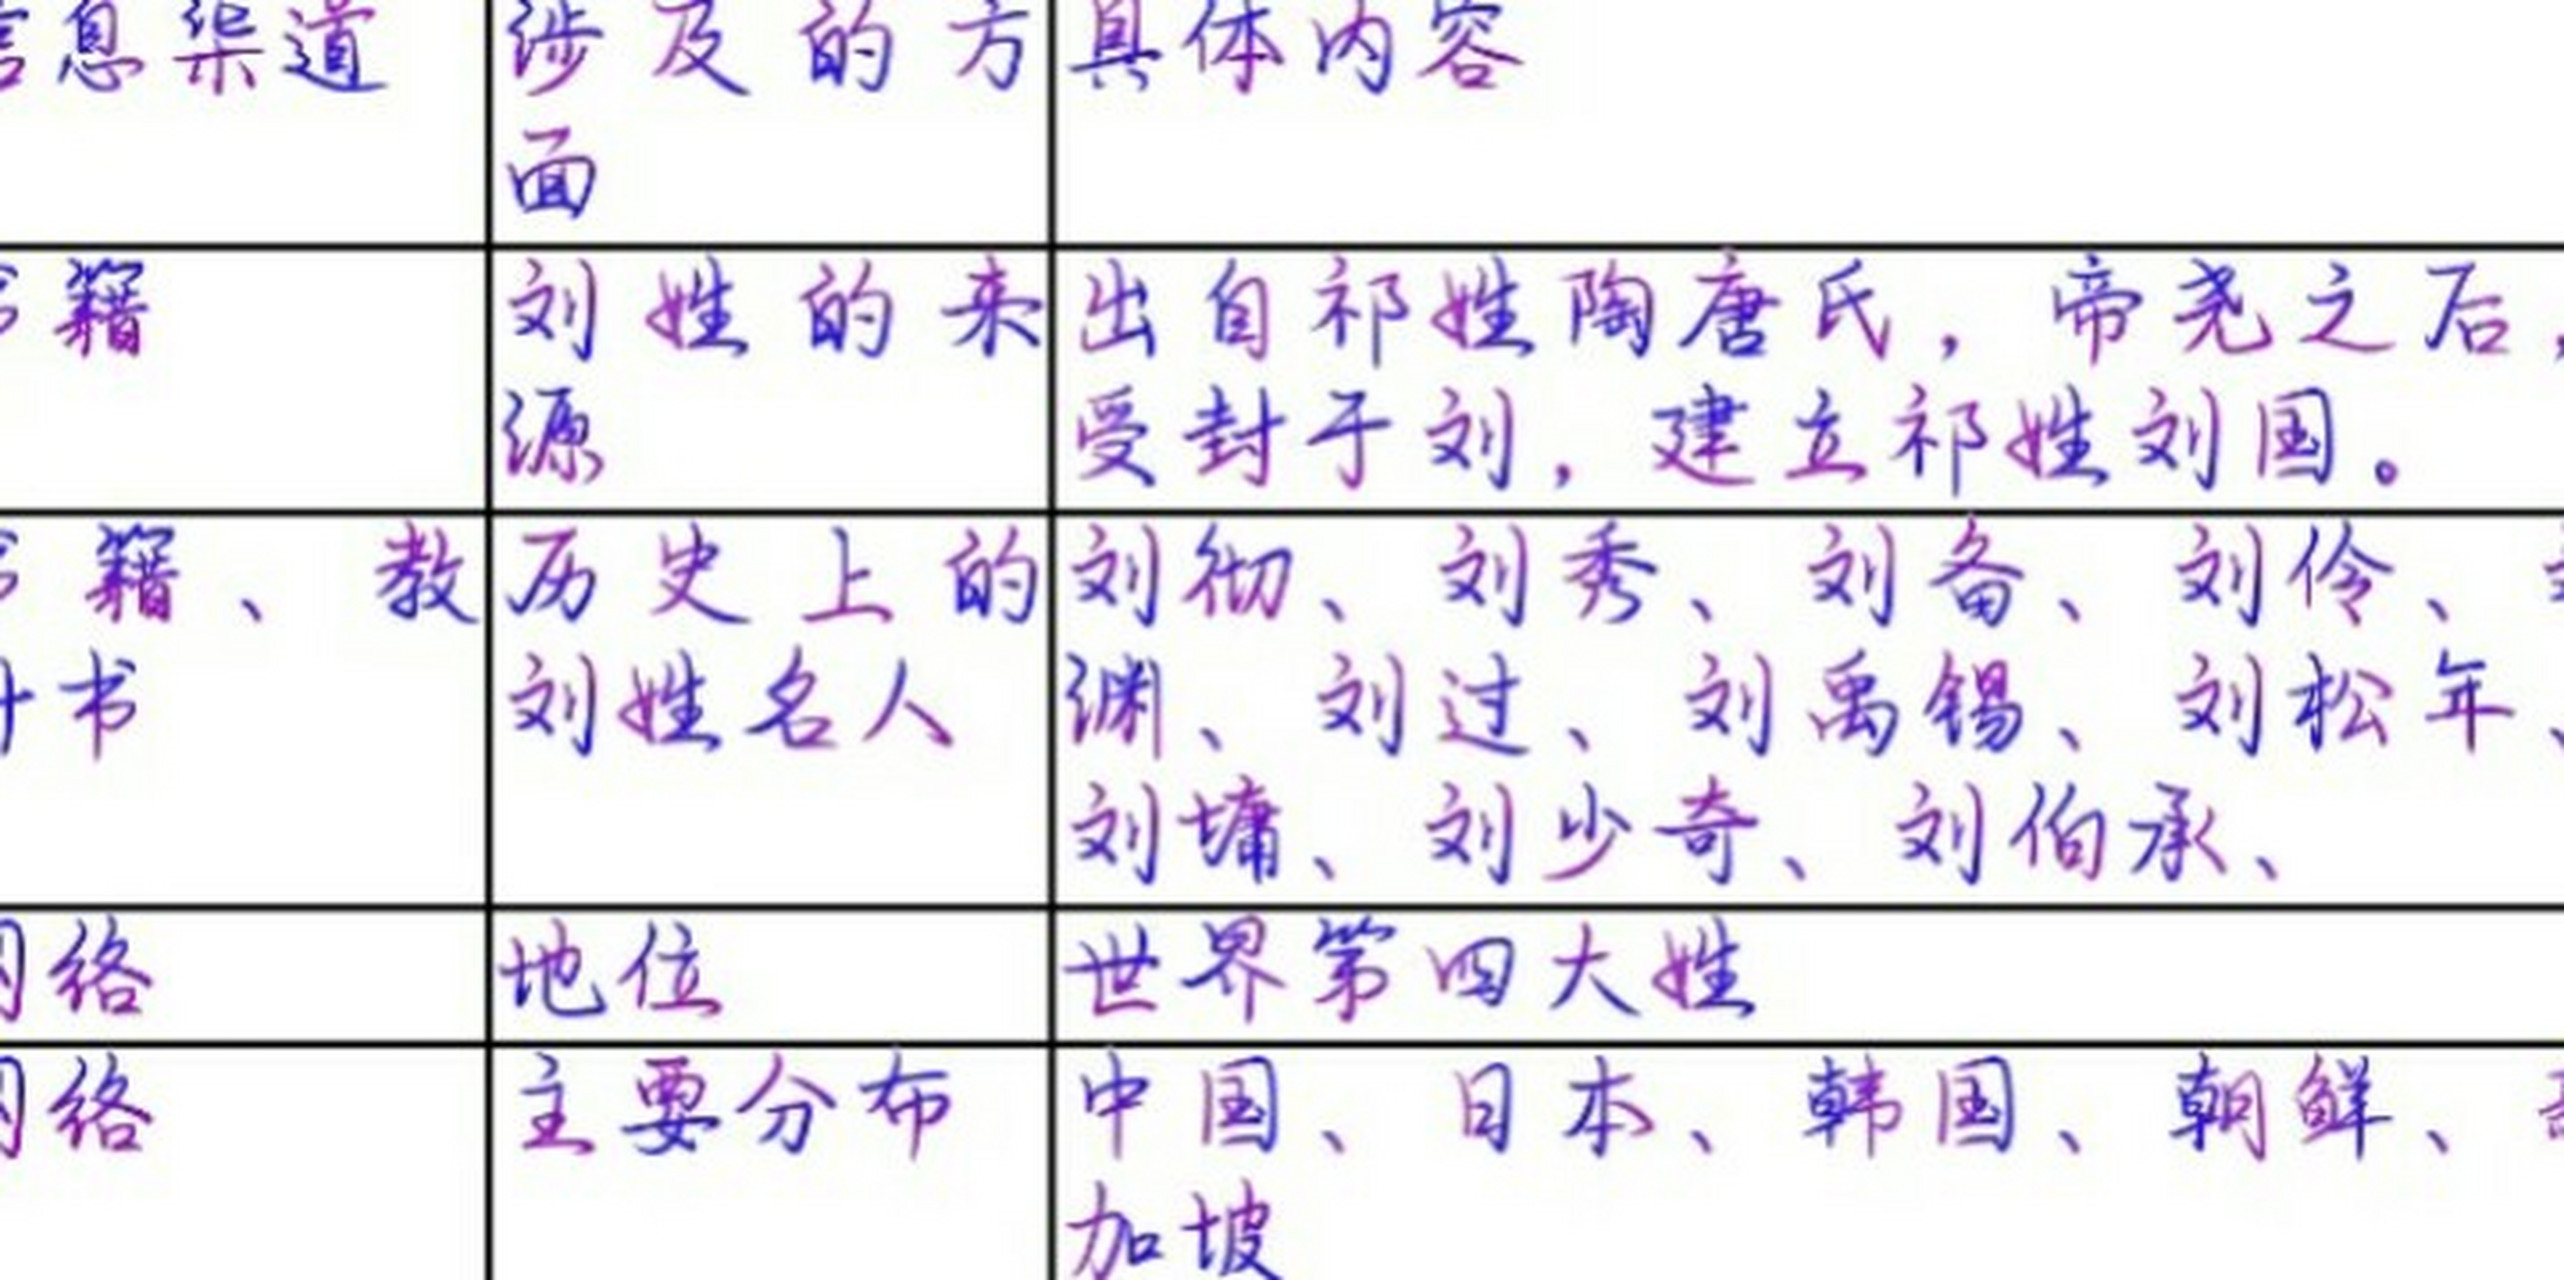 息渠道
涉及的方
面
具体内容
籍
刘姓的来
源
出自祁姓陶唐氏，帝尧之后，
受封于刘，建立祁姓刘国。
籍、教
书
历史上的
刘姓名人
刘彻、刘秀、刘备、刘伶、
渊、刘过、刘禹锡、刘松年、
刘墉、刘少奇、刘伯承、
络
地位
世界第四大姓
络
主要分布
中国、日本、韩国、朝鲜、
加坡